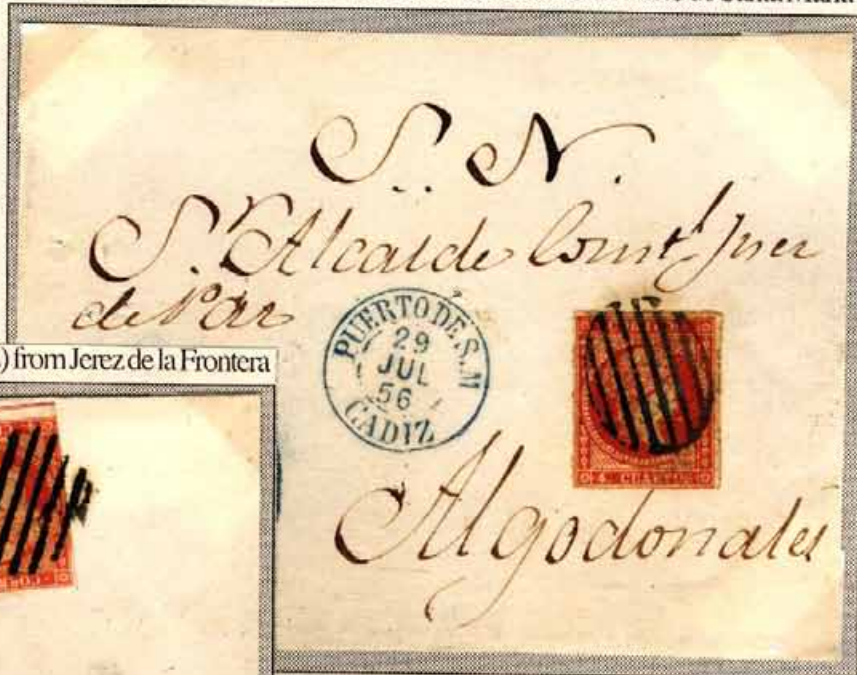 S. N.
Sr. Alcalde Const.l Juez
de Paz
PUERTO DE S. M
29
JUL
56
CADIZ
4 CUARTOS
Algodonales
) from Jerez de la Frontera